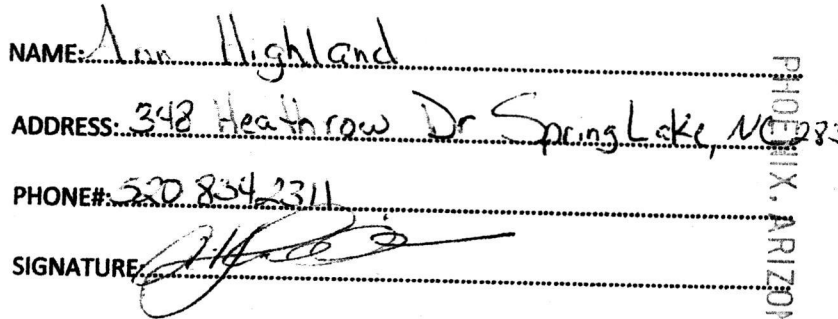 NAME: Ann Highland
ADDRESS: 348 Heathrow Dr Spring Lake, NC 283
PHONE#: 520 834 2311
SIGNATURE:
PHOENIX, ARIZON